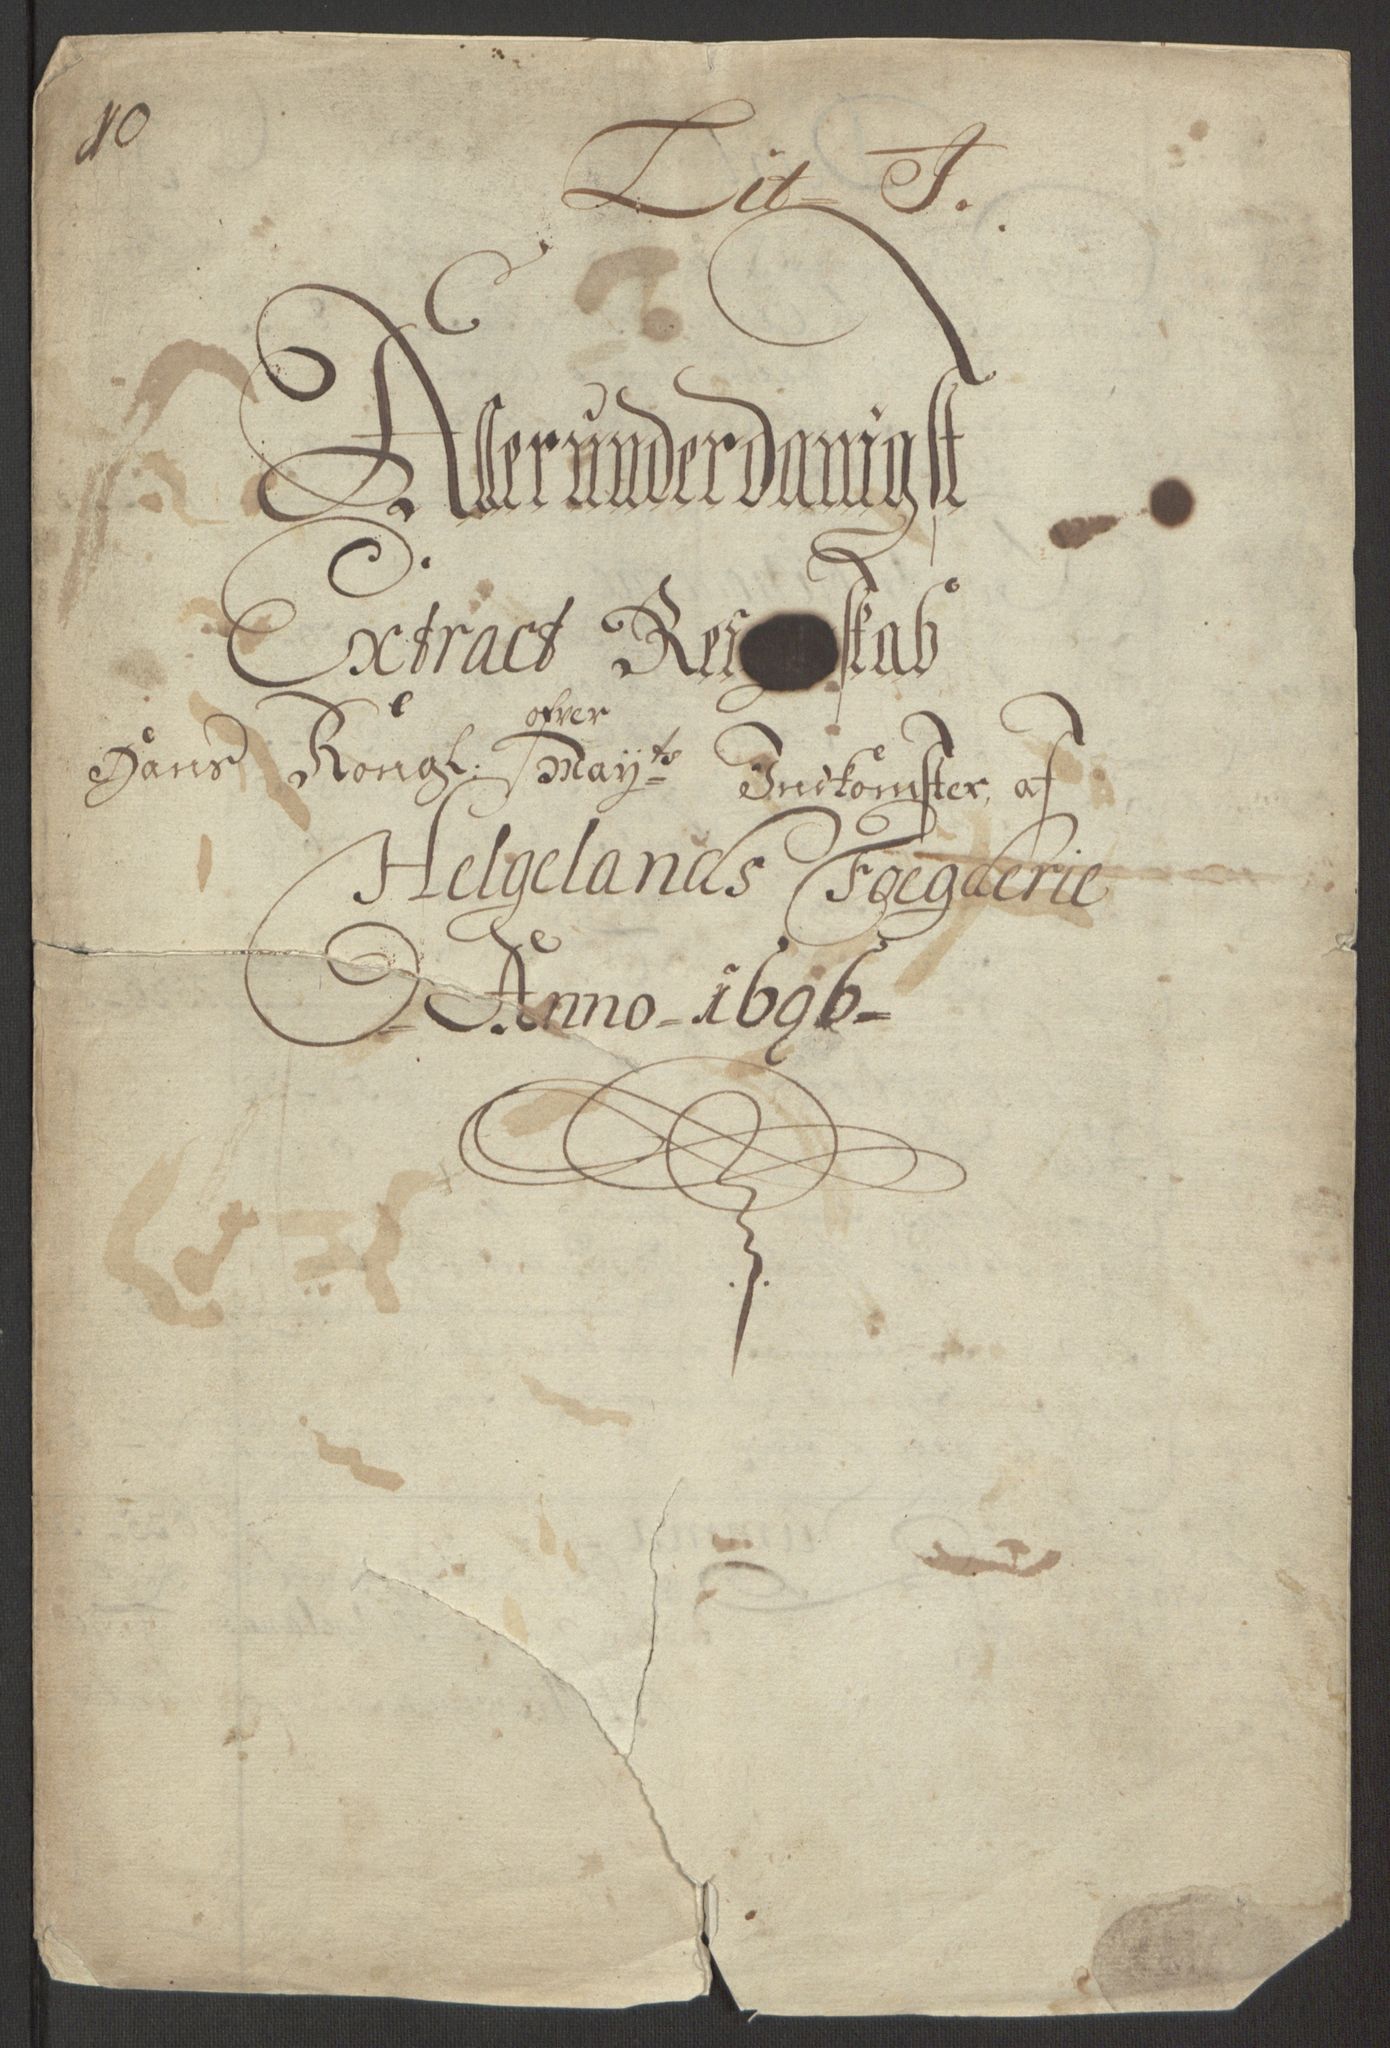 10
Lit= J.
Allerunderdanigst
Extract Regenskab
ofver
Hans Kongl: Mayts Indkomster, af
Helgelands Foegderie
Anno = 1696 =